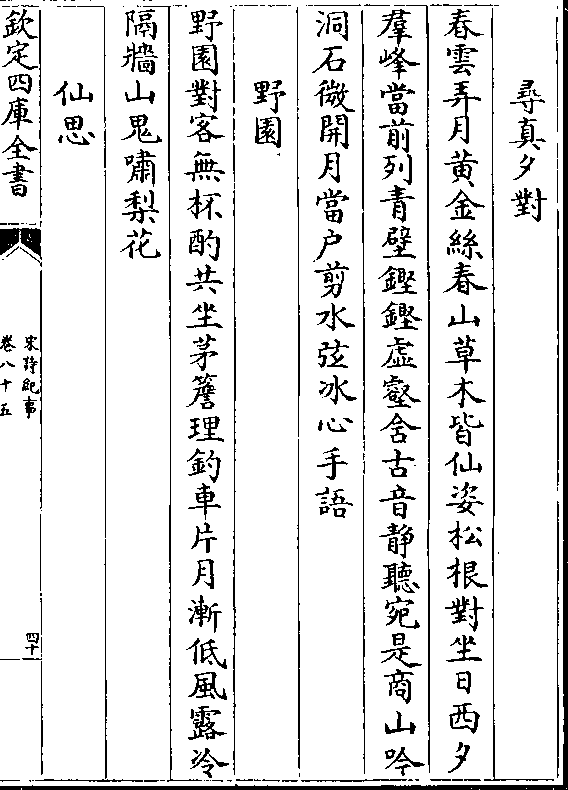 尋真夕對
春雲弄月黄金絲春山草木皆仙姿松根對坐日西夕
羣峰當前列青壁鏗鏗虛壑含古音静聽宛是商山吟
洞石微開月當户剪水弦冰心手語
野園
野園對客無杯酌共坐茅簷理釣車片月漸低風露冷
隔牆山鬼嘯梨花
仙思
欽定四庫全書
宋詩紀事
卷八十五
四十